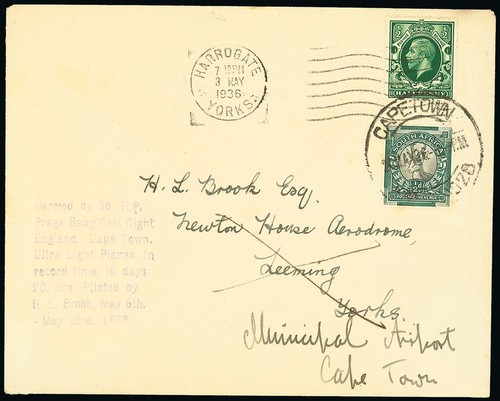 HARROGATE
7 15PM
3 MAY
1936
YORKS.
HALFPENNY
CAPETOWN
SOUTH AFRICA
H. L. Brook Esq.
Newton House Aerodrome,
Leeming
Yorks.
Municipal Airport
Cape Town
Carried by 38. H.P.
Praga Baby first flight
England Cape Town.
Ultra Light Planes. in
record time. 16 days
20. hrs. Piloted by
H. L. Brook, May 6th.
- May 23rd. 1936